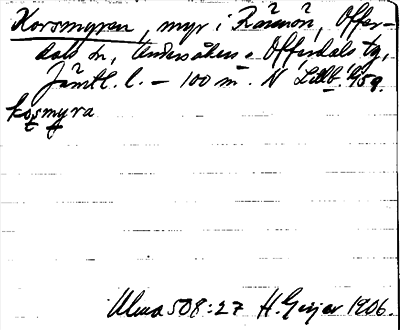 Korsmyren, myr i Rännön, Offer-
dals sn, Undersåkers o Offerdals tg,
Jämtl. l. – 100 m. N Lillb. 6/59.
kosmyra
Ulma 508:27 H. Geijer 1906.